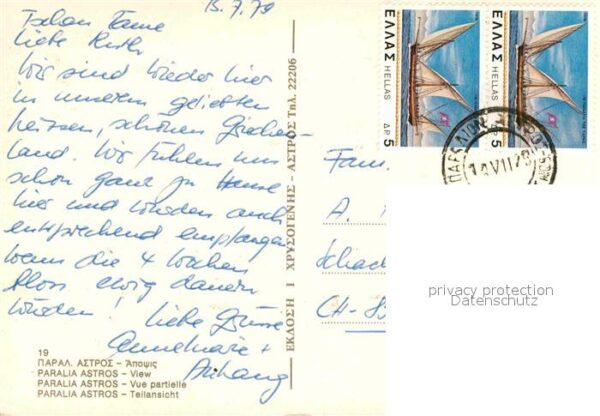 15.7.79
Liebe Ruth
Wir sind wieder hier
in unserem geliebten
heissen, schönen Griechen-
land. Wir fühlen uns
schon ganz zu Hause
hier und wurden auch
entsprechend empfangen
wenn die 4 Wochen
bloss ewig dauern
würden! Liebe Grüsse
Annemarie +
Anhang
19
ΠΑΡΑΛ. ΑΣΤΡΟΣ - Άποψις
PARALIA ASTROS - View
PARALIA ASTROS - Vue partielle
PARALIA ASTROS - Teilansicht
ΕΚΔΟΣΗ Ι ΧΡΥΣΟΓΕΝΗΣ - ΑΣΤΡΟΣ Τηλ. 22206
ΕΛΛΑΣ HELLAS ΔΡ 5
ΕΛΛΑΣ HELLAS ΔΡ 5
Fam.
A.
Schac
CH-
privacy protection
Datenschutz